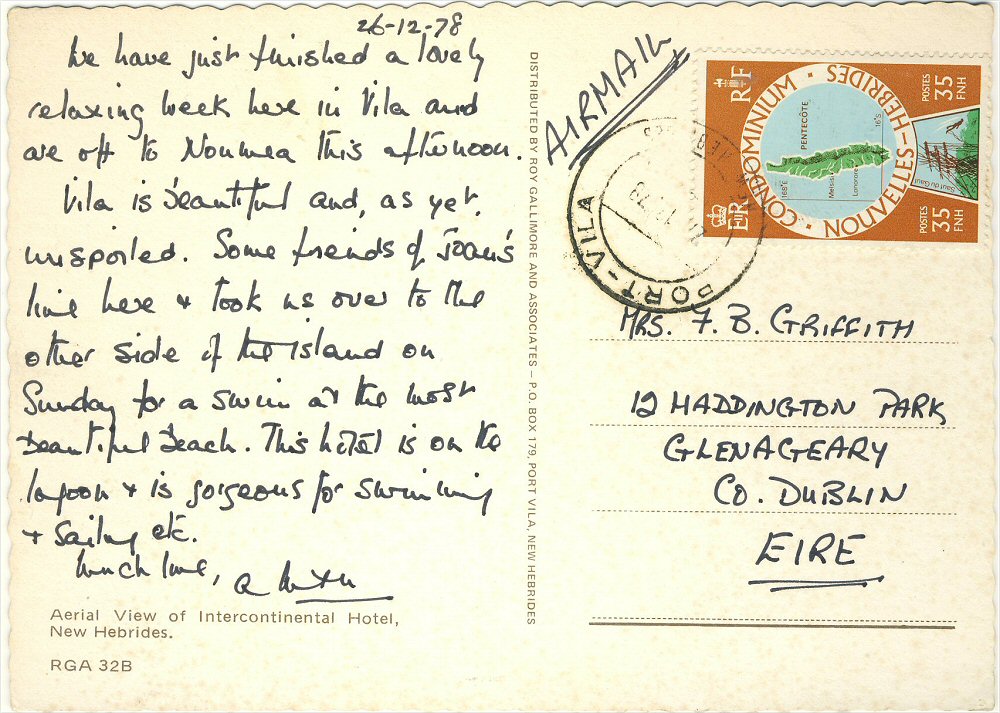 26-12-78
We have just finished a lovely
relaxing week here in Vila and
are off to Noumea this afternoon.
Vila is beautiful and, as yet,
unspoiled. Some friends of Joan's
live here + took us over to the
other side of the island on
Sunday for a swim at the most
beautiful beach. This hotel is on the
lagoon + is gorgeous for swimming
+ sailing etc.
Much love,
Aerial View of Intercontinental Hotel,
New Hebrides.
RGA 32B
DISTRIBUTED BY ROY GALLIMORE AND ASSOCIATES – P.O. BOX 179, PORT VILA, NEW HEBRIDES
AIRMAIL
PORT-VILA
CONDOMINIUM · NOUVELLES-HEBRIDES ·
RF
ER
PENTECÔTE
16°S
168°E
Melsisi
Lonorore
Saut du Gaul
POSTES 35 FNH
POSTES 35 FNH
MRS. F. B. GRIFFITH
12 HADDINGTON PARK,
GLENAGEARY
CO. DUBLIN
EIRE